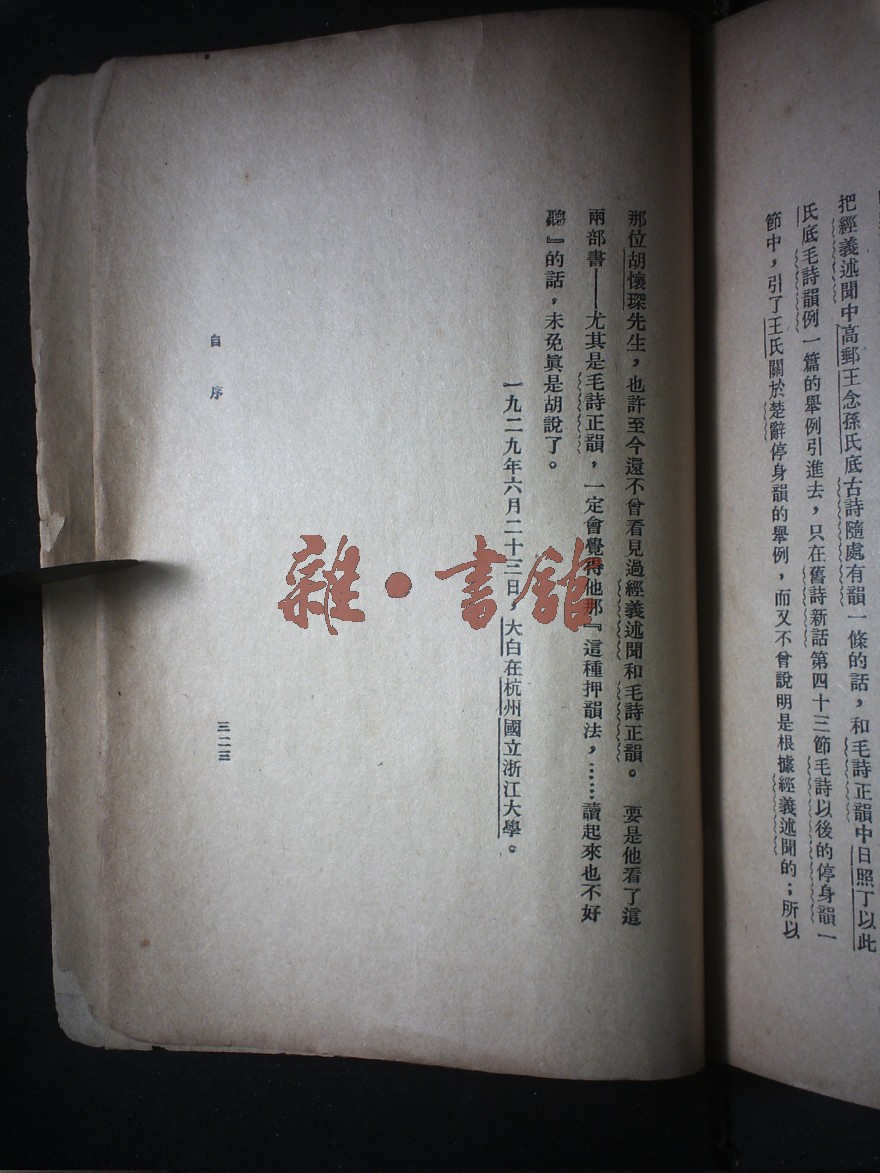 把經義述聞中高郵王念孫氏底古詩隨處有韻一條的話，和毛詩正韻中日照丁以此
氏底毛詩韻例一篇的舉例引進去，只在舊詩新話第四十三節毛詩以後的停身韻一
節中，引了王氏關於楚辭停身韻的舉例，而又不曾說明是根據經義述聞的；所以
那位胡懷琛先生，也許至今還不曾看見過經義述聞和毛詩正韻。要是他看了這
兩部書——尤其是毛詩正韻，一定會覺得他那『這種押韻法，……讀起來也不好
聽』的話，未免眞是胡說了。
一九二九年六月二十三日，大白在杭州國立浙江大學。
自序
三二三
雜·書館